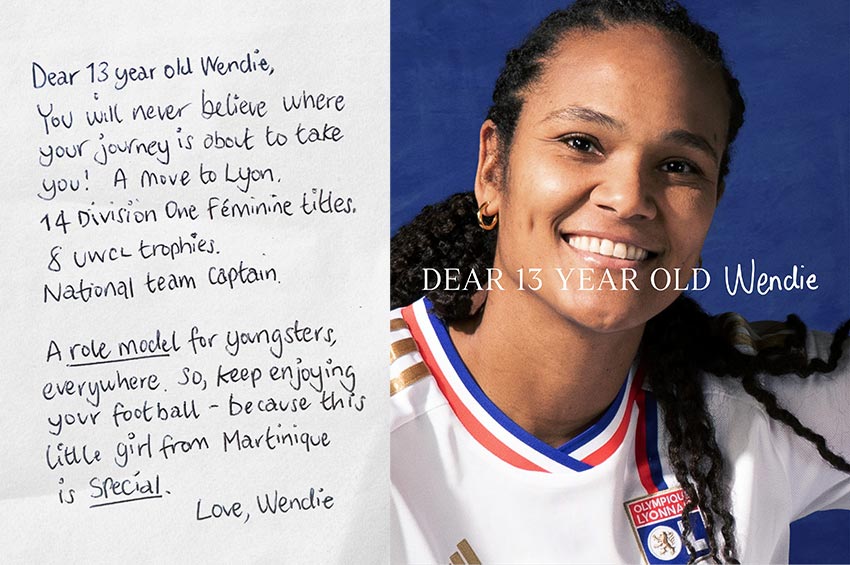 Dear 13 year old Wendie,
You will never believe where
your journey is about to take
you! A move to Lyon.
14 Division One Féminine titles.
8 UWCL trophies.
National team Captain.
A role model for youngsters,
everywhere. So, keep enjoying
your football - because this
little girl from Martinique
is Special.
Love, Wendie
DEAR 13 YEAR OLD Wendie
OLYMPIQUE
LYONNA